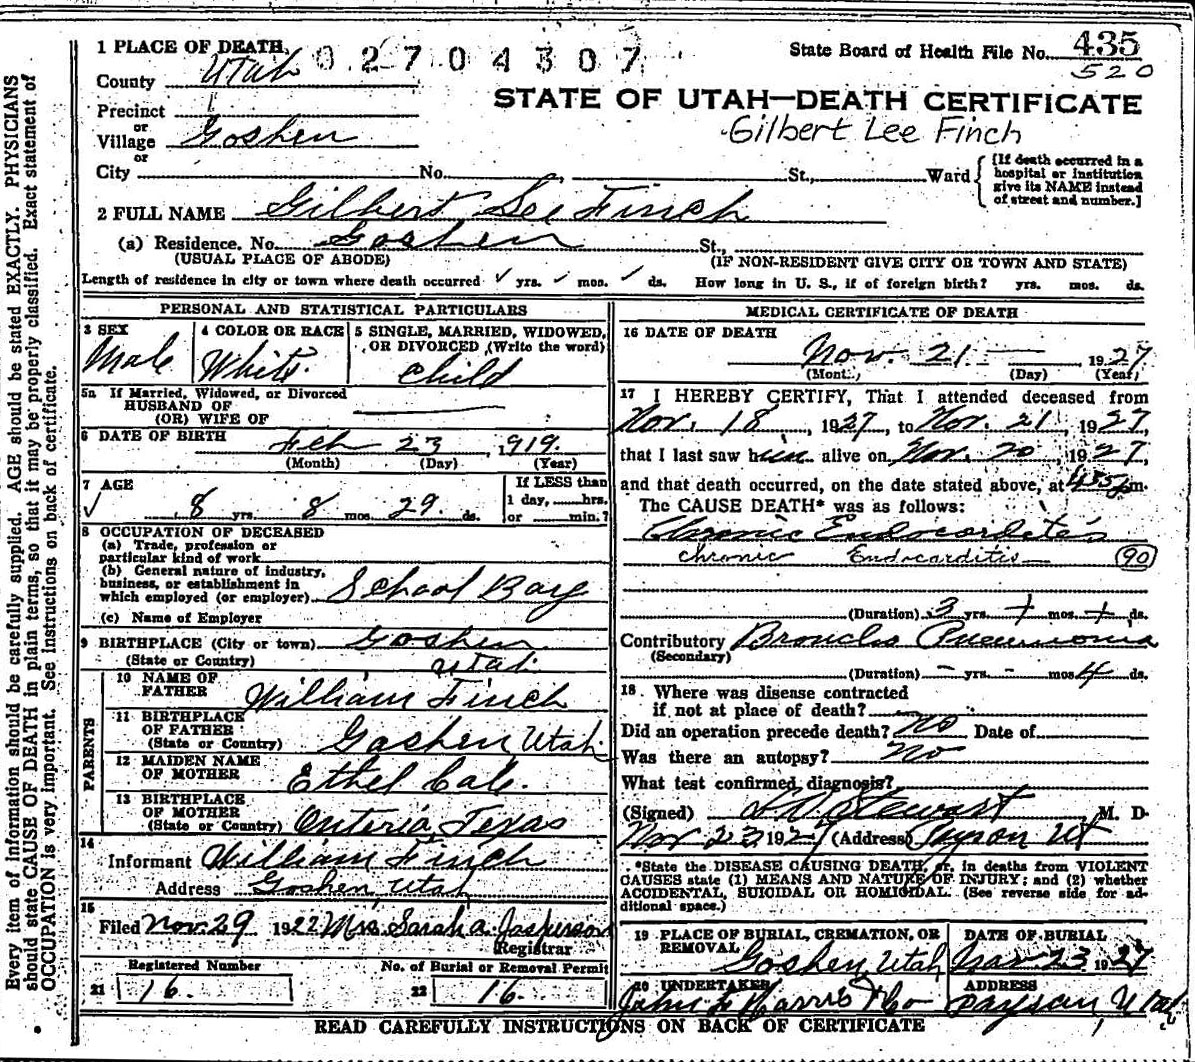 1 PLACE OF DEATH
02704307
State Board of Health File No. 435
520
County Utah
STATE OF UTAH—DEATH CERTIFICATE
Precinct
or
Gilbert Lee Finch
Village Goshen
or
City No. St., Ward
[If death occurred in a
hospital or institution
give its NAME instead
of street and number.]
2 FULL NAME Gilbert Lee Finch
(a) Residence, No. Goshen St.,
(USUAL PLACE OF ABODE) (IF NON-RESIDENT GIVE CITY OR TOWN AND STATE)
Length of residence in city or town where death occurred ✓ yrs. ✓ mos. ✓ ds. How long in U. S., if of foreign birth? yrs. mos. ds.
PERSONAL AND STATISTICAL PARTICULARS
3 SEX
Male
4 COLOR OR RACE
White
5 SINGLE, MARRIED, WIDOWED,
OR DIVORCED (Write the word)
Child
5a If Married, Widowed, or Divorced
HUSBAND OF
(OR) WIFE OF
6 DATE OF BIRTH Feb 23, 1919.
(Month) (Day) (Year)
7 AGE
✓ 8 yrs. 8 mos. 29. ds.
If LESS than
1 day, hrs.
or min.?
8 OCCUPATION OF DECEASED
(a) Trade, profession or
particular kind of work
(b) General nature of industry,
business, or establishment in
which employed (or employer) School Boy
(c) Name of Employer
9 BIRTHPLACE (City or town) Goshen
(State or Country) Utah
PARENTS
10 NAME OF
FATHER William Finch
11 BIRTHPLACE
OF FATHER
(State or Country) Goshen, Utah
12 MAIDEN NAME
OF MOTHER Ethel Cale.
13 BIRTHPLACE
OF MOTHER
(State or Country) Texas
14
Informant William Finch
Address Goshen Utah
15
Filed Nov. 29 1927 Mrs. Sarah A. Jasperson
Registrar
Registered Number
21 16.
No. of Burial or Removal Permit
22 16.
MEDICAL CERTIFICATE OF DEATH
16 DATE OF DEATH
Nov. 21 — 1927
(Mont.) (Day) (Year)
17 I HEREBY CERTIFY, That I attended deceased from
Nov. 18, 1927, to Nov. 21, 1927,
that I last saw him alive on Nov. 20, 1927,
and that death occurred, on the date stated above, at 435 pm.
The CAUSE DEATH* was as follows:
Chronic Endocarditis
chronic Endocarditis — 90
(Duration) 3 yrs. + mos. + ds.
Contributory Broncho Pneumonia
(Secondary)
(Duration) - yrs. - mos. 4 ds.
18 Where was disease contracted
if not at place of death?
Did an operation precede death? No Date of
Was there an autopsy? No
What test confirmed diagnosis?
(Signed) Stewart M. D.
Nov 23, 1927 (Address) Payson Ut
*State the DISEASE CAUSING DEATH, or, in deaths from VIOLENT
CAUSES state (1) MEANS AND NATURE OF INJURY; and (2) whether
ACCIDENTAL, SUICIDAL OR HOMICIDAL. (See reverse side for ad-
ditional space.)
19 PLACE OF BURIAL, CREMATION, OR
REMOVAL
Goshen, Utah
DATE OF BURIAL
Nov 23 1927
20 UNDERTAKER
John L Harris & Co
ADDRESS
Payson, Utah
READ CAREFULLY INSTRUCTIONS ON BACK OF CERTIFICATE
Every item of information should be carefully supplied. AGE should be stated EXACTLY. PHYSICIANS
should state CAUSE OF DEATH in plain terms, so that it may be properly classified. Exact statement of
OCCUPATION is very important. See instructions on back of certificate.